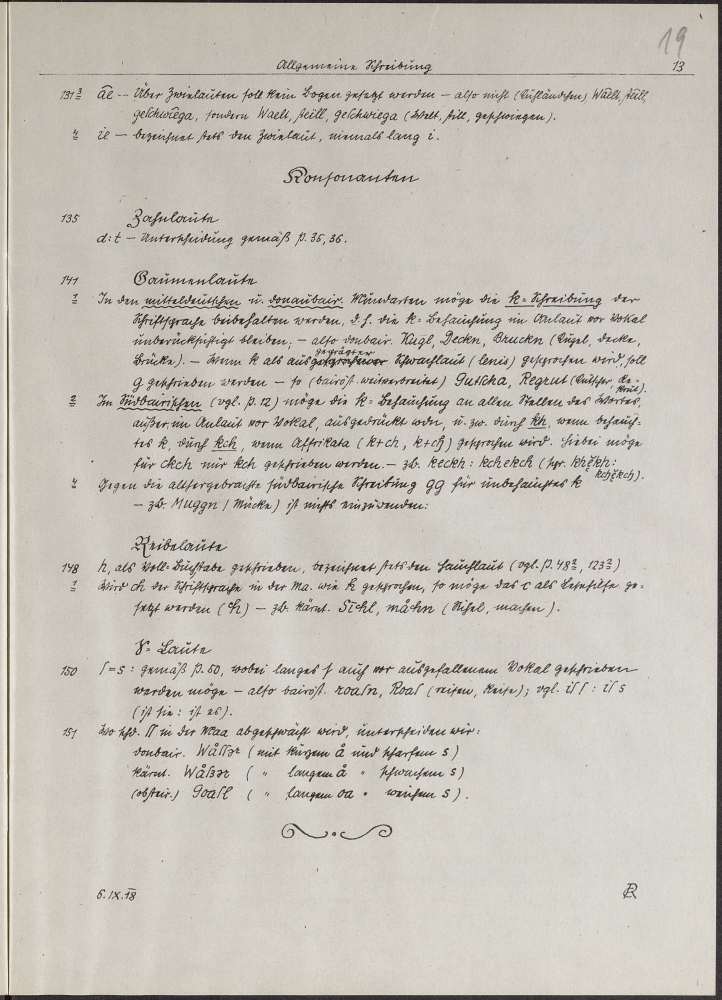 19
Allgemeine Schreibung 13
131 3 a͞e -- Über Zwielauten soll kein Bogen gesetzt werden — also nicht (Kuhländchen) Wa͞elt, ste͞ill,
geschwi͞ega, sondern Waelt, steill, geschwiega (Welt, still, geschwiegen).
4 ie — bezeichnet stets den Zwielaut, niemals lang i.
Konsonanten
135 Zahnlaute
d:t — Unterscheidung gemäß P. 35, 36.
141 Gaumenlaute
1 In den mitteldeutschen u. donaubair. Mundarten möge die k-Schreibung der
Schriftsprache beibehalten werden, d.h. die k-Behauchung im Anlaut vor Vokal
unberücksichtigt bleiben; — also donbair. Kugl, Deckn, Bruckn (Kugel, Decke,
Brücke). — Wenn k als ausgeprägter Schwachlaut (lenis) gesprochen wird, soll
g geschrieben werden — so (bairöst. weitverbreitet) Gutscha, Regrut (Kutscher, Rekrut).
2 Im Südbairischen (vgl. P. 12) möge die k-Behauchung an allen Stellen des Wortes,
außer im Anlaut vor Vokal, ausgedrückt wdn, u. zw. durch kh, wenn behauchtes
k, durch kch, wenn Affrikata (k+ch, k+ch) gesprochen wird. Hiebei möge
für ckch nur kch geschrieben werden. — zb. keckh: kchekch (spr. khĕkh: kchĕkch).
4 Gegen die althergebrachte südbairische Schreibung gg für unbehauchtes k
— zb. Muggn (Mücke) ist nichts einzuwenden.
Reibelaute
148 h, als Voll-Buchstabe geschrieben, bezeichnet stets den Hauchlaut (vgl. P. 48 2, 123 2)
1 Wird ch der Schriftsprache in der Ma. wie h gesprochen, so möge das c als Lesehilfe gesetzt
werden (ch) — zb. kärnt. Sichl, måchn (Sichel, machen).
S-Laute
150 ſ=s: gemäß P. 50, wobei langes ſ auch vor ausgefallenem Vokal geschrieben
werden möge — also bairöst. roaſn, Roaſ (reisen, Reise); vgl. iſ ſ : iſ s
(ist sie: ist es).
151 Wo schd. ſſ in der Maa abgeschwächt wird, unterscheiden wir:
donbair. Wåſſer (mit kurzem å und scharfem s)
kärnt. Wåſzer ( " langem å " schwachem s)
(obsteir.) Goaſl ( " langem oa " weichem s).
6.IX.18